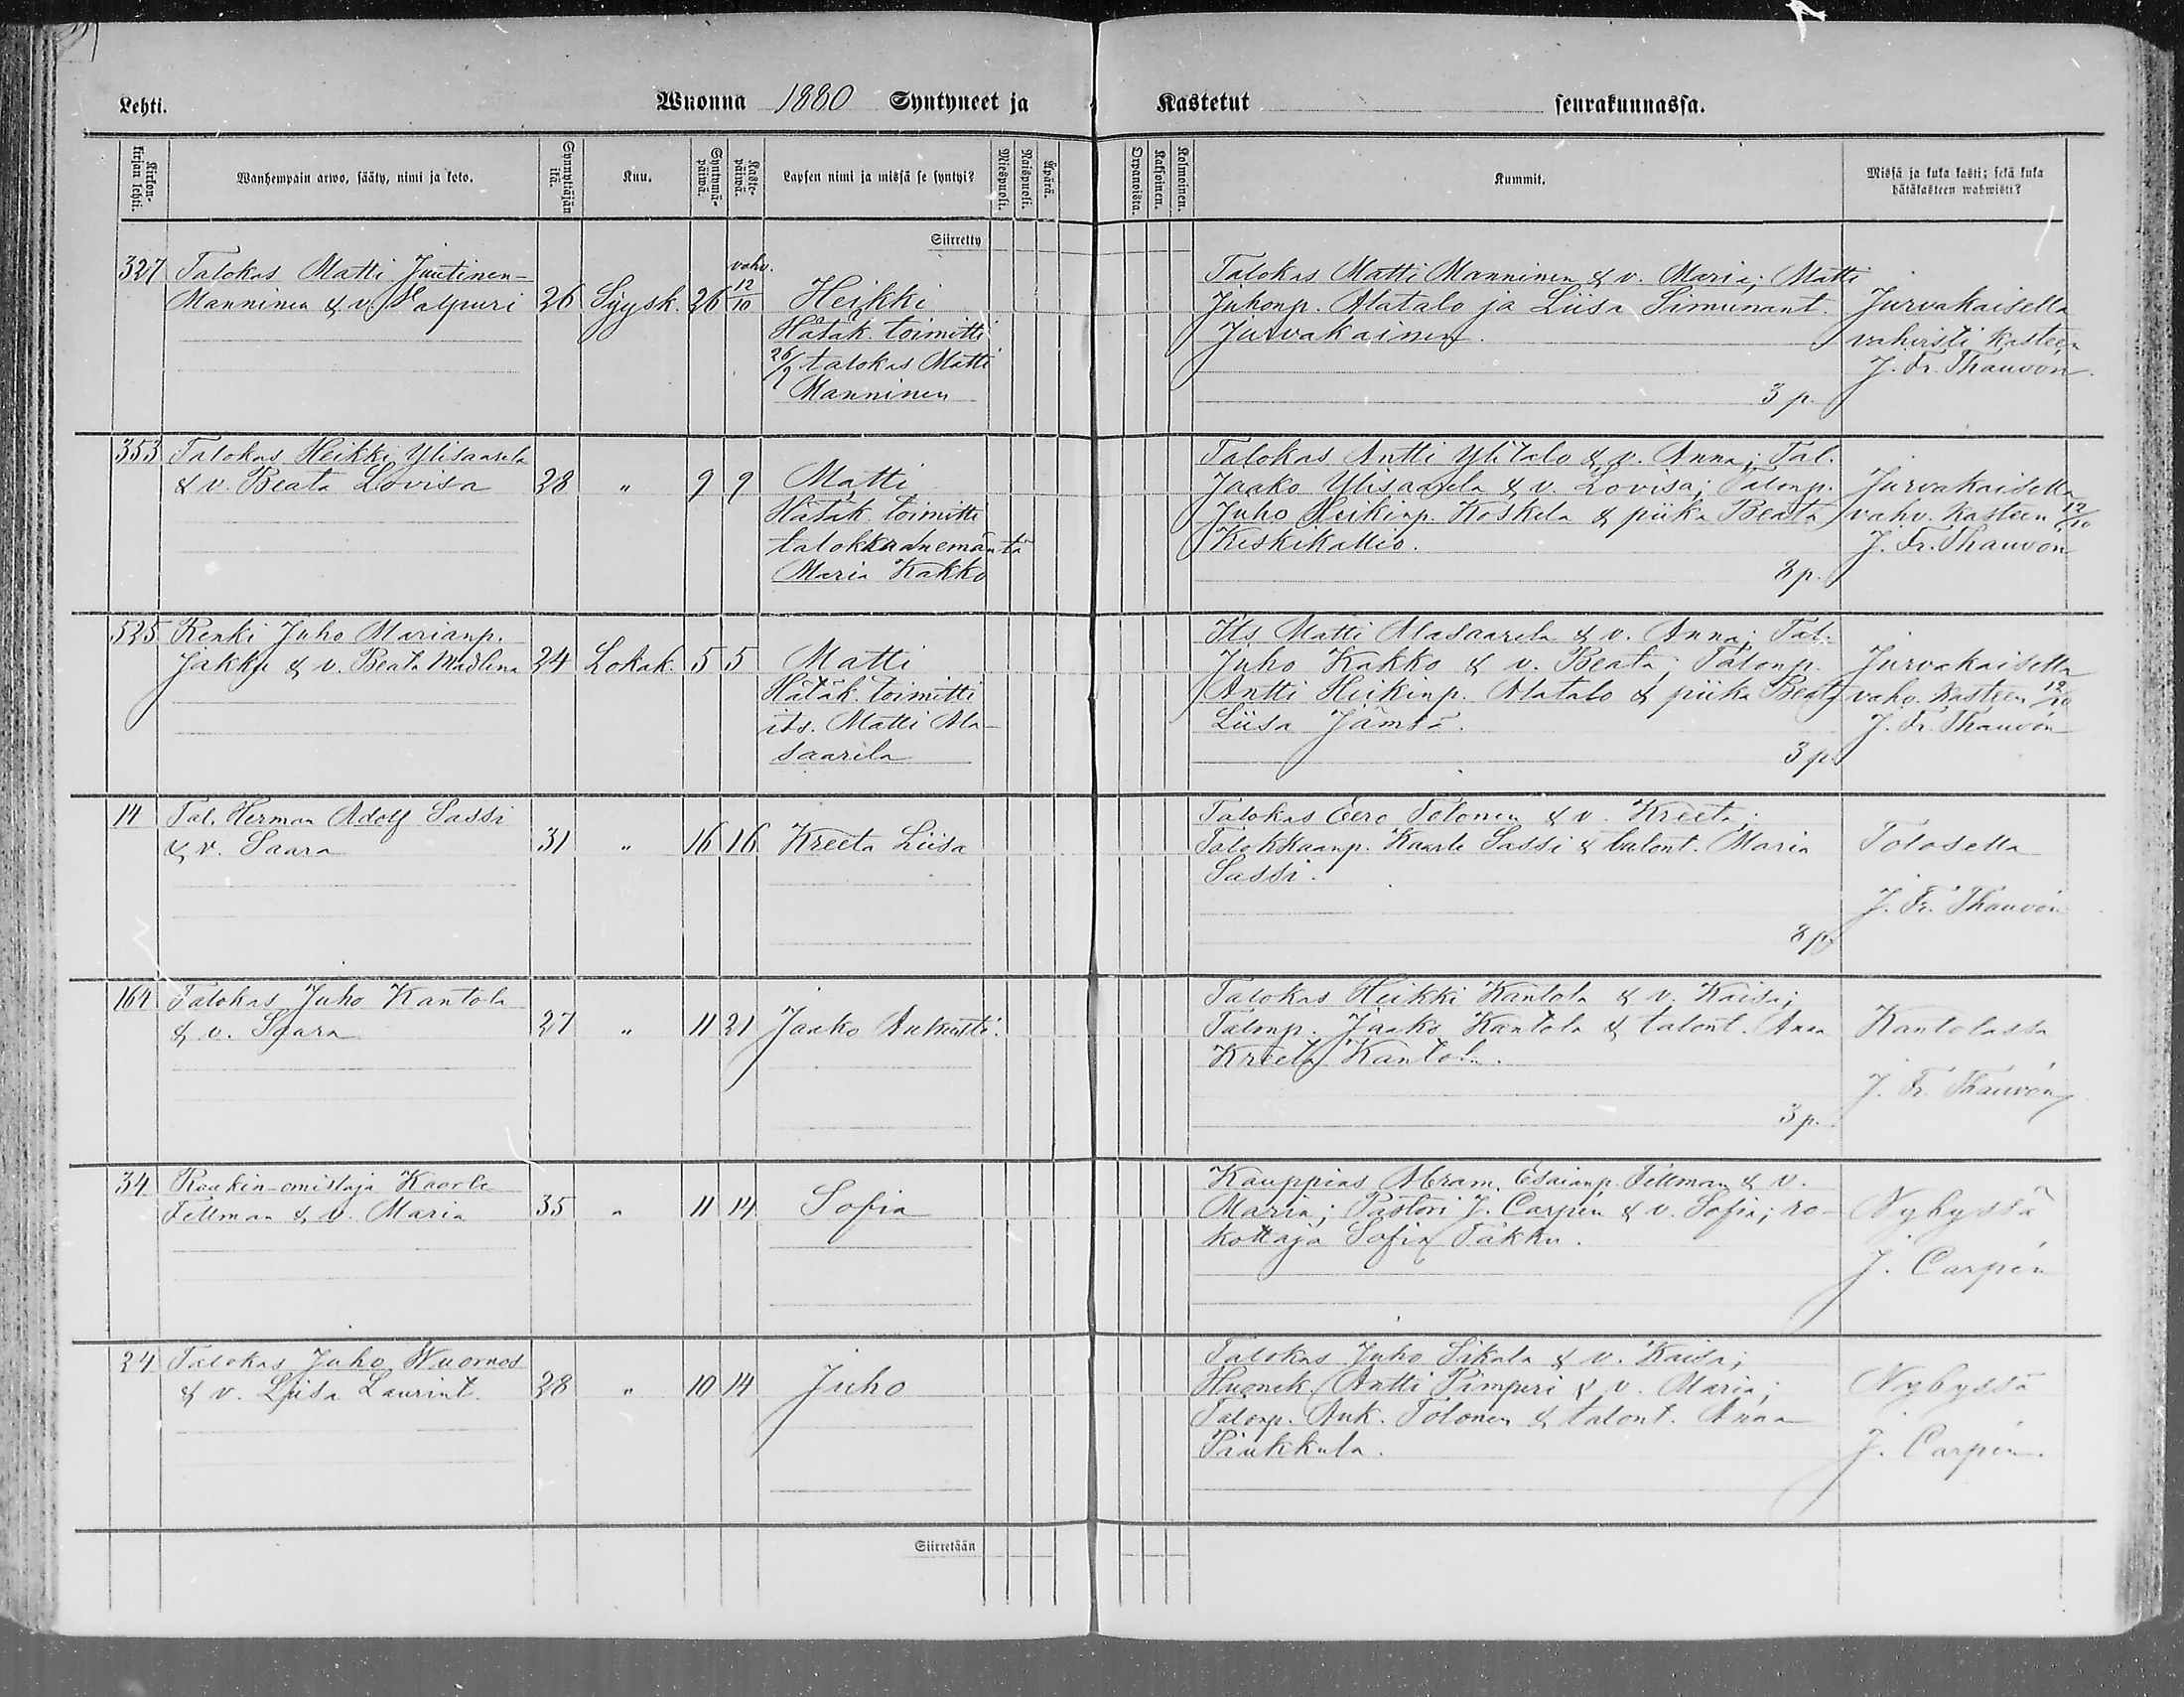 Lehti.
Wuonna 1880 Syntyneet ja Kastetut seurakunnassa.
Kirkon-kirjan lehti.
Wanhempain arwo, sääty, nimi ja koto.
Synnyttäjän ikä.
Kuu.
Syntymä-päiwä.
Kaste-päiwä.
Lapsen nimi ja missä se syntyi?
Miespuoli.
Naispuoli.
Äpärä.
Orwanoista.
Kaksoinen.
Kolmoinen.
Kummit.
Missä ja kuka kasti; sekä kuka hätäkasteen wahwisti?
Siirretty
327 Talokas Matti Juutinen-
Manninen & v. Valpuri 26 Syysk. 26 vahv. 12/10 Heikki
Hätäk. toimitti
26/9 talokas Matti
Manninen
Talokas Matti Manninen & v. Maria; Matti
Juhonp. Alatalo ja Liisa Simunant.
Jurvakainen.
3 p.
Jurvakaisella
vahvisti kasteen
J. Fr. Thauvón.
353 Talokas Heikki Ylisaarela
& v. Beata Lovisa 28 " 9 9 Matti
Hätäk. toimitti
talokkaan emäntä
Maria Kakko
Talokas Antti Ylitalo & v. Anna; Tal.
Jaako Ylisaarela & v. Lovisa; Talonp.
Juho Heikinp. Koskela & piika Beata
Keskikallio.
2 p.
Jurvakaisella
vahv. kasteen 12/10
J. Fr. Thauvón
525 Renki Juho Marianp.
Jakku & v. Beata Madlena 24 Lokak. 5 5 Matti
Hätäk. toimitti
its. Matti Ala-
saarela
Its. Matti Alasaarela & v. Anna; Tal.
Juho Kakko & v. Beata; Talonp.
Antti Heikinp. Alatalo & piika Beata
Liisa Jämsä.
3 p.
Jurvakaisella
vahv. kasteen 12/10
J. Fr. Thauvón
14 Tal. Herman Adolf Sassi
& v. Saara 31 " 16 16 Kreeta Liisa
Talokas Eero Tolonen & v. Kreeta;
Talokkaanp. Kaarle Sassi & talont. Maria
Sassi.
2 p.
Tolosella
J. Fr. Thauvón
164 Talokas Juho Kantola
& v. Saara 27 " 11 21 Jaako Aukusti.
Talokas Heikki Kantola & v. Kaisa;
Talonp. Jaako Kantola & talont. Anna
Kreeta Kantola.
3 p.
Kantolassa
J. Fr. Thauvón
34 Raakin-omistaja Kaarle
Fellman & v. Maria 35 " 11 14 Sofia
Kauppias Abram Esaianp. Fellman & v.
Maria; Pastori J. Carpén & v. Sofia; ro-
kottaja Sofia Takku.
Nybyssä
J. Carpén
24 Talokas Juho Wuornos
& v. Liisa Laurint. 28 " 10 14 Juho
Talokas Juho Sikala & v. Kaisa;
Huonek. Antti Pimperi & v. Maria;
Talonp. Auk. Tolonen & talont. Anna
Paukkula.
Nybyssä
J. Carpén.
Siirretään